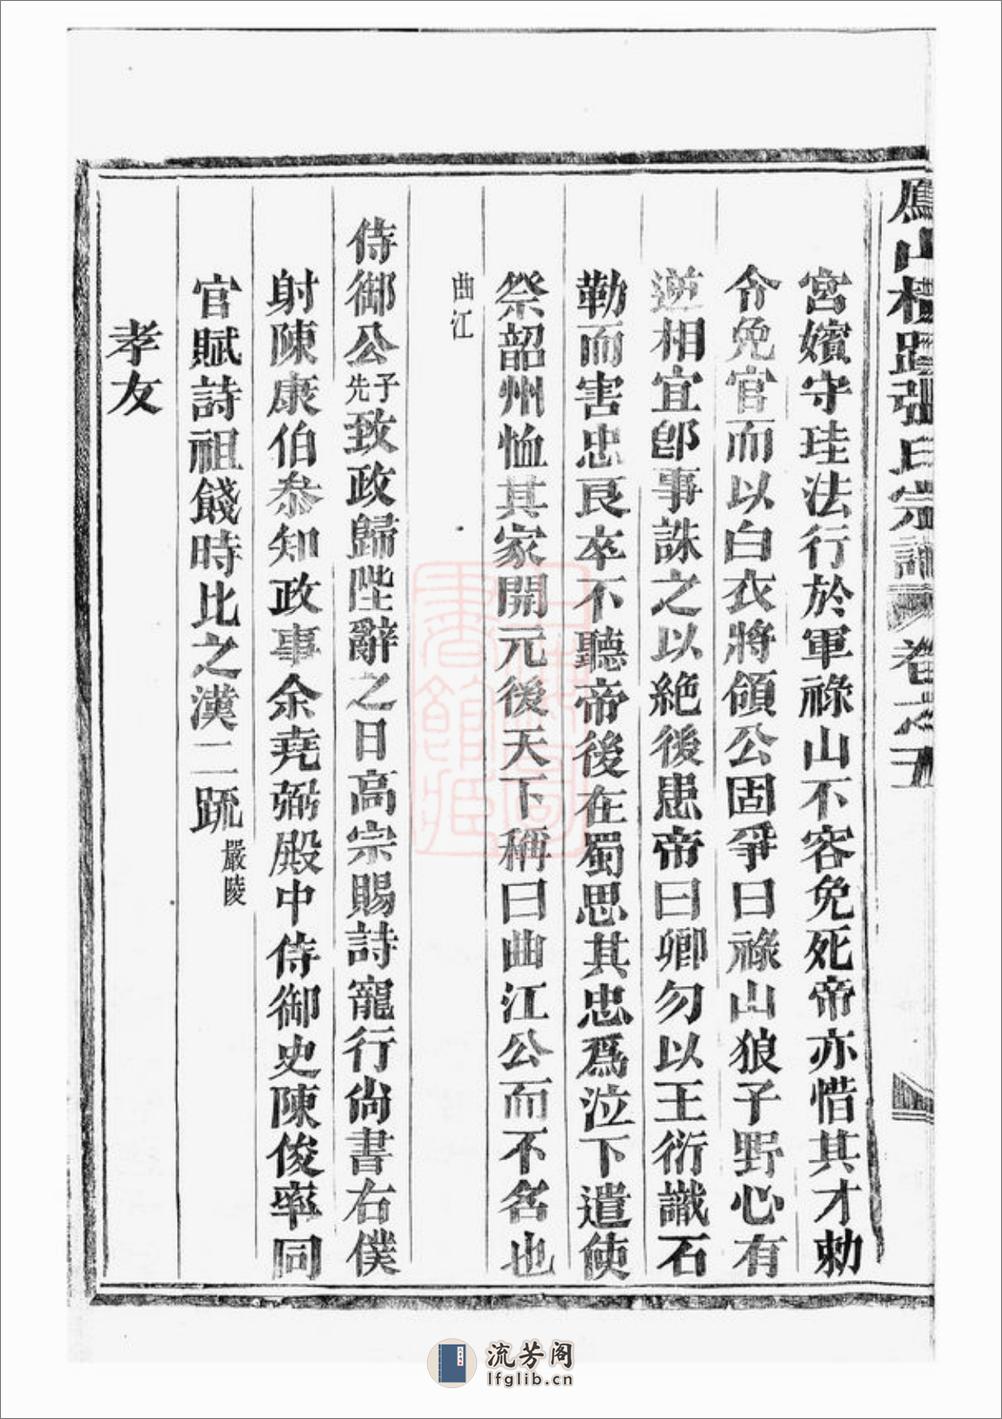 鳳山橫路張氏宗譜 卷之五
宮嬪守珪法行於軍祿山不容免死帝亦惜其才勅
令免官而以白衣將領公固爭曰祿山狼子野心有
逆相宜卽事誅之以絕後患帝曰卿勿以王衍識石
勒而害忠良卒不聽帝後在蜀思其忠爲泣下遣使
祭韶州恤其家開元後天下稱曰曲江公而不名也
曲江
侍御公子先致政歸陛辭之日高宗賜詩寵行尚書右僕
射陳康伯叅知政事余堯弼殿中侍御史陳俊率同
官賦詩祖餞時比之漢二疏嚴陵
孝友
流芳阁
lfglib.cn